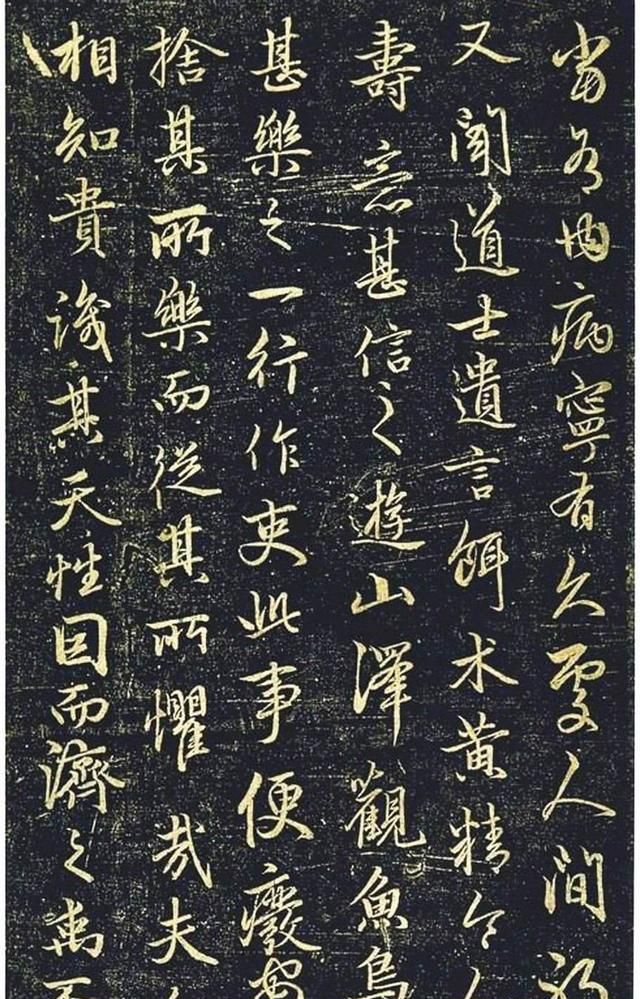 當有內病寧有久處人間
又聞道士遺言餌术黃精令
壽意甚信之遊山澤觀魚鳥
甚樂之一行作吏此事便癈安
捨其所樂而從其所懼哉夫
相知貴識其天性因而濟之禹不